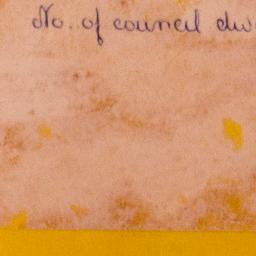 No. of council dw